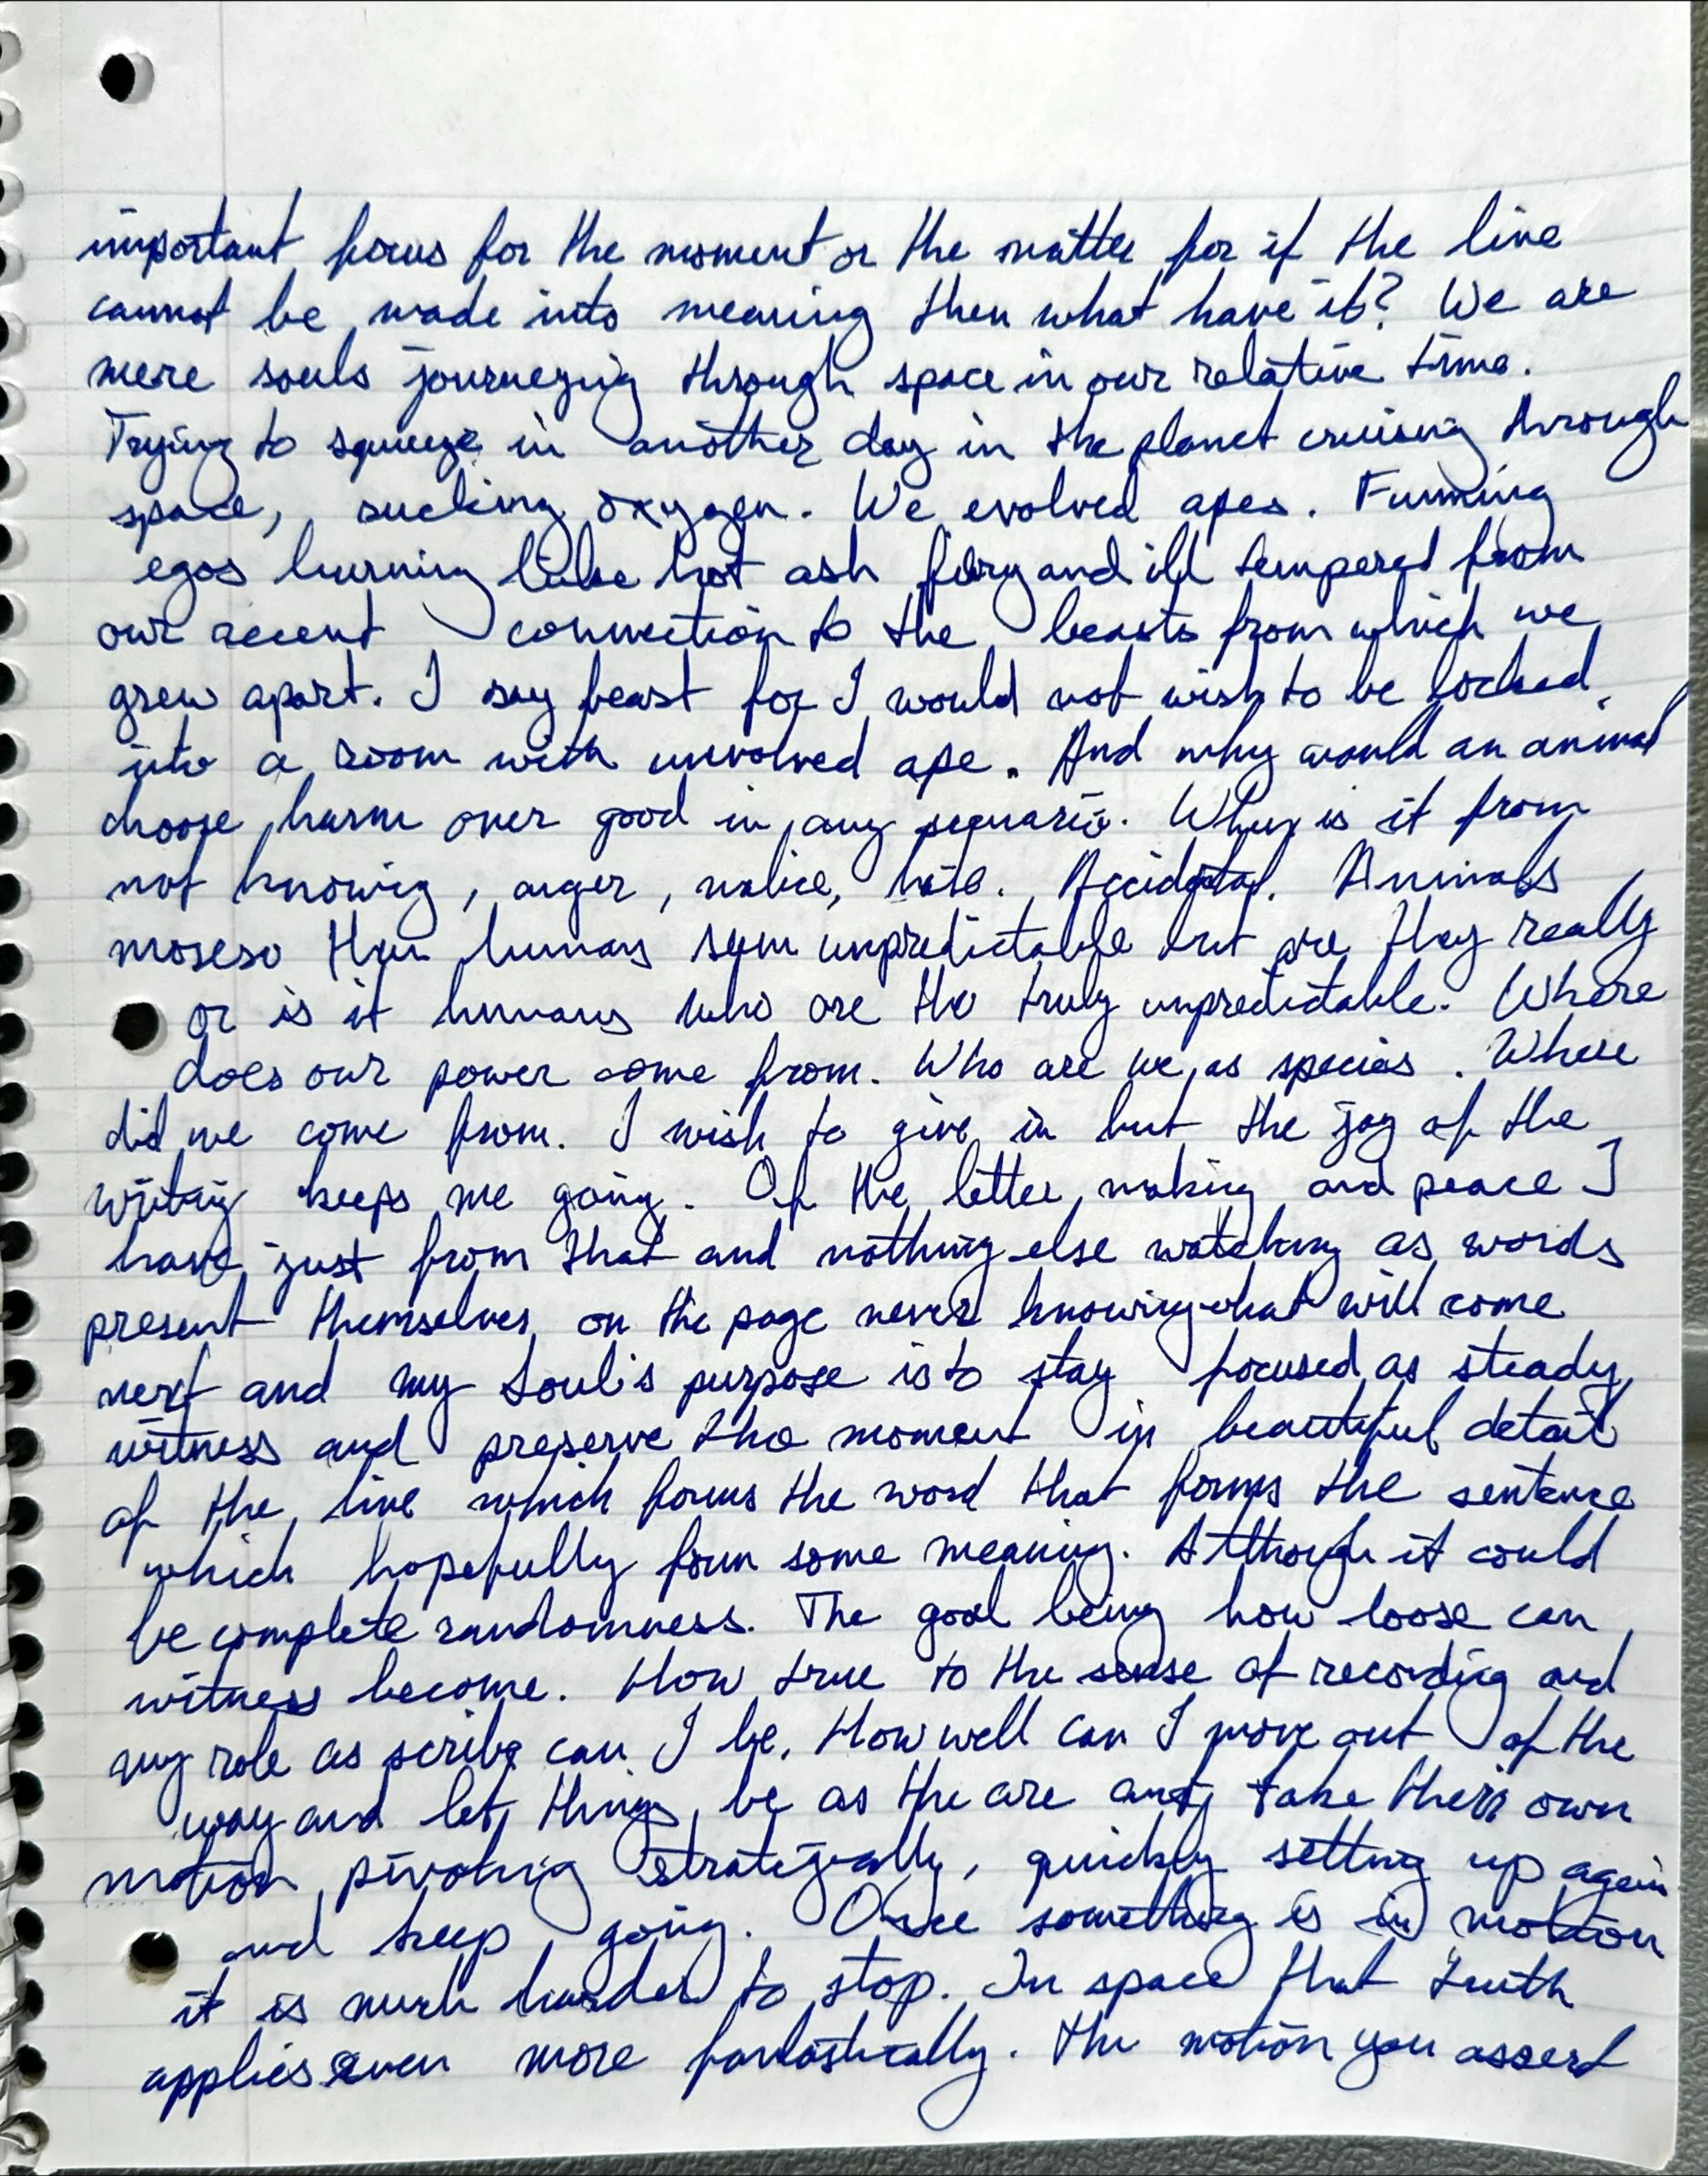 important focus for the moment or the matter for if the line
cannot be made into meaning then what have it? We are
mere souls journeying through space in our relative time.
Trying to squeeze in another day in the planet cruising through
space, sucking oxygen. We evolved apes. Fumming
egos burning like hot ash firy and ill tempered from
our recent connection to the beasts from which we
grew apart. I say beast for I would not wish to be locked
into a room with unvolved ape. And why would an animal
choose harm over good in any sequario. When is it from
not knowig, anger, malice, hate. Accidetal. Animals
moreso than humans seem unpredictable but are they really
or is it humans who are the truly unpredictable. Where
does our power come from. Who are we as species. Where
did we come from. I wish to give in but the joy of the
writing keeps me going. Of the letter making and peace I
have just from that and nothing else watching as words
present themselves on the page never knowing what will come
next and my Soul's purpose is to stay focused as steady
witness and preserve the moment in beautiful detail
of the line which forms the word that forms the sentence
which hopefully form some meaning. Although it could
be complete randomness. The goal being how loose can
witness become. How true to the sense of recording and
my role as scribe can I be. How well can I move out of the
way and let things be as the are and take their own
motion pivoting strategically, quickly setting up again
and keep going. Once something is in motion
it is much harder to stop. In space that truth
applies even more fantastically. The motion you assert